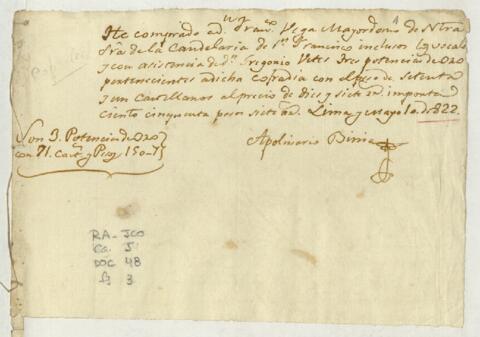 He comprado a dn. Franco. Vega Mayordomo de Ntra
Sra de la Candelaria de Sn. Francisco
y con asistencia de dn. Gregorio tres potencias de oro
pertenecientes a dicha Cofradia con el peso de setenta
y un Castellanos al precio de dies y siete rs. importan
ciento cinquenta pesos siete rs. Lima y Mayo 1o. de 822.
Apolinario
Son 3. Potencias de Oro
con 71. Cas.
RA-JCO
Ca. 5
DOC 48
fs 3